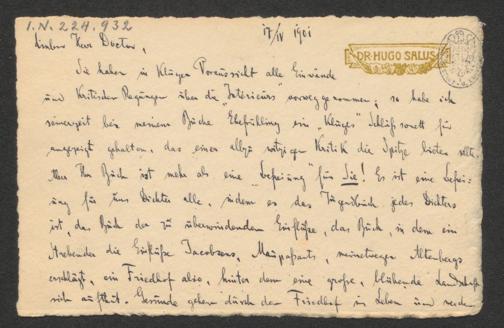 I.N. 224.932
17/IV 1901
DR. HUGO SALUS
Lieber Herr Doctor,
Sie haben in kluger Voraussicht alle Einwände
und kritischen Regungen über die "Interieurs" vorweggenommen; so habe ich
seinerzeit bei meinem Buche "Ehefrühling" ein "kluges" Schlußsonett für
angezeigt gehalten, das einer allzu witzigen Kritik die Spitze bieten sollte.
Ihr Buch ist mehr als eine "Befreiung" für Sie! Es ist eine Befrei-
ung für uns Dichter alle, indem es das Jugendbuch jedes Dichters
ist, das Buch der zu überwindenden Einflüße, das Buch, in dem ein
Strebender die Einflüße Jacobsens, Maupassants, meinetwegen Altenbergs
erschlägt, ein Friedhof also, hinter dem eine große, blühende Landschaft
sich aufthut. Gesunde gehen durch den Friedhof in Leben und